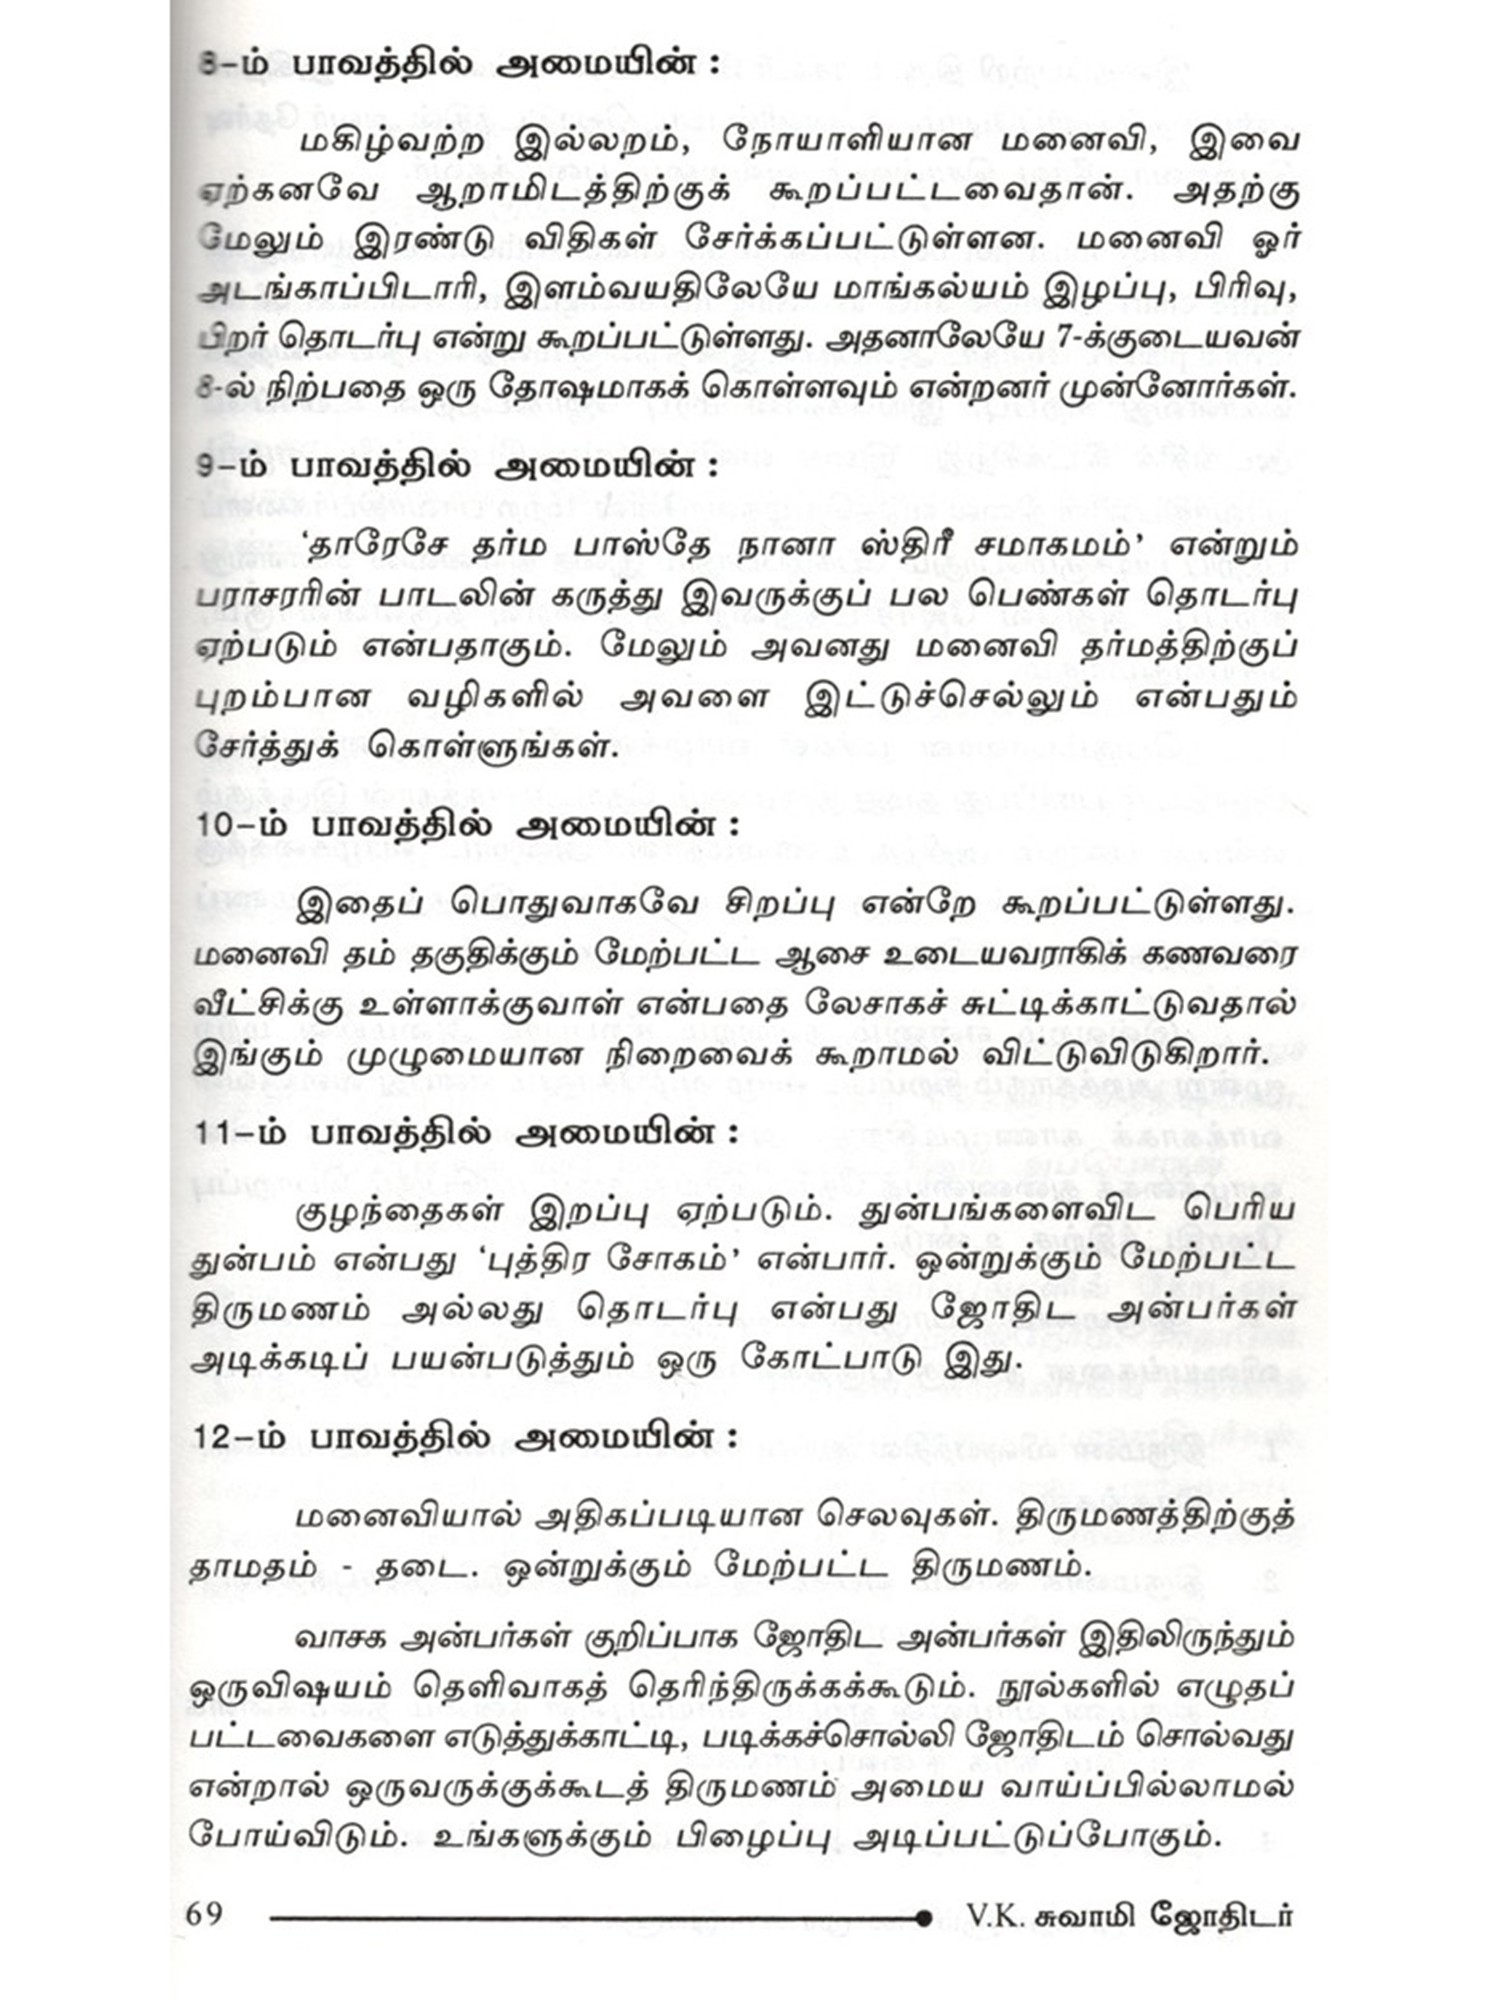 8-ம் பாவத்தில் அமையின் :
மகிழ்வற்ற இல்லறம், நோயாளியான மனைவி, இவை
ஏற்கனவே ஆறாமிடத்திற்குக் கூறப்பட்டவைதான். அதற்கு
மேலும் இரண்டு விதிகள் சேர்க்கப்பட்டுள்ளன. மனைவி ஓர்
அடங்காப்பிடாரி, இளம்வயதிலேயே மாங்கல்யம் இழப்பு, பிரிவு,
பிறர் தொடர்பு என்று கூறப்பட்டுள்ளது. அதனாலேயே 7-க்குடையவன்
8-ல் நிற்பதை ஒரு தோஷமாகக் கொள்ளவும் என்றனர் முன்னோர்கள்.
9-ம் பாவத்தில் அமையின் :
‘தாரேசே தர்ம பாஸ்தே நானா ஸ்திரீ சமாகமம்’ என்றும்
பரர்சரரின் பாடலின் கருத்து இவருக்குப் பல பெண்கள் தொடர்பு
ஏற்படும் என்பதாகும். மேலும் அவனது மனைவி தர்மத்திற்குப்
புறம்பான வழிகளில் அவளை இட்டுச்செல்லும் என்பதும்
சேர்த்துக் கொள்ளுங்கள்.
10-ம் பாவத்தில் அமையின் :
இதைப் பொதுவாகவே சிறப்பு என்றே கூறப்பட்டுள்ளது.
மனைவி தம் தகுதிக்கும் மேற்பட்ட ஆசை உடையவராகிக் கணவரை
வீட்சிக்கு உள்ளாக்குவாள் என்பதை லேசாகச் சுட்டிக்காட்டுவதால்
இங்கும் முழுமையான நிறைவைக் கூறாமல் விட்டுவிடுகிறார்.
11-ம் பாவத்தில் அமையின் :
குழந்தைகள் இறப்பு ஏற்படும். துன்பங்களைவிட பெரிய
துன்பம் என்பது ‘புத்திர சோகம்’ என்பார். ஒன்றுக்கும் மேற்பட்ட
திருமணம் அல்லது தொடர்பு என்பது ஜோதிட அன்பர்கள்
அடிக்கடிப் பயன்படுத்தும் ஒரு கோட்பாடு இது.
12-ம் பாவத்தில் அமையின் :
மனைவியால் அதிகப்படியான செலவுகள். திருமணத்திற்குத்
தாமதம் - தடை. ஒன்றுக்கும் மேற்பட்ட திருமணம்.
வாசக அன்பர்கள் குறிப்பாக ஜோதிட அன்பர்கள் இதிலிருந்தும்
ஒருவிஷயம் தெளிவாகத் தெரிந்திருக்கக்கூடும். நூல்களில் எழுதப்
பட்டவைகளை எடுத்துக்காட்டி, படிக்கச்சொல்லி ஜோதிடம் சொல்வது
என்றால் ஒருவருக்குக்கூடத் திருமணம் அமைய வாய்ப்பில்லாமல்
போய்விடும். உங்களுக்கும் பிழைப்பு அடிப்பட்டுப்போகும்.
69 V.K. சுவாமி ஜோதிடர்